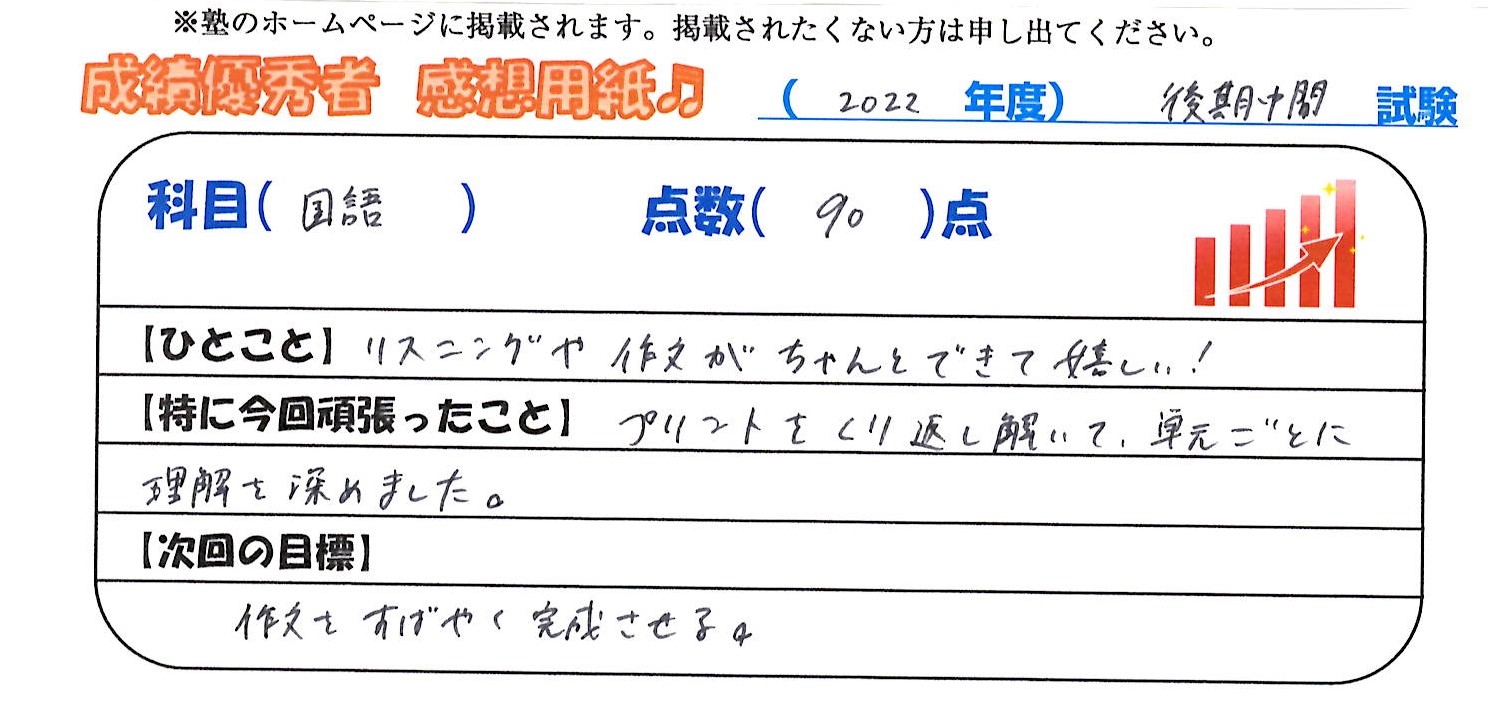 ※塾のホームページに掲載されます。掲載されたくない方は申し出てください。
成績優秀者 感想用紙♫ (2022年度) 後期中間 試験
科目(国語) 点数(90)点
【ひとこと】リスニングや作文がちゃんとできて嬉しい!
【特に今回頑張ったこと】プリントをくり返し解いて、単元ごとに
理解を深めました。
【次回の目標】
作文をすばやく完成させる。